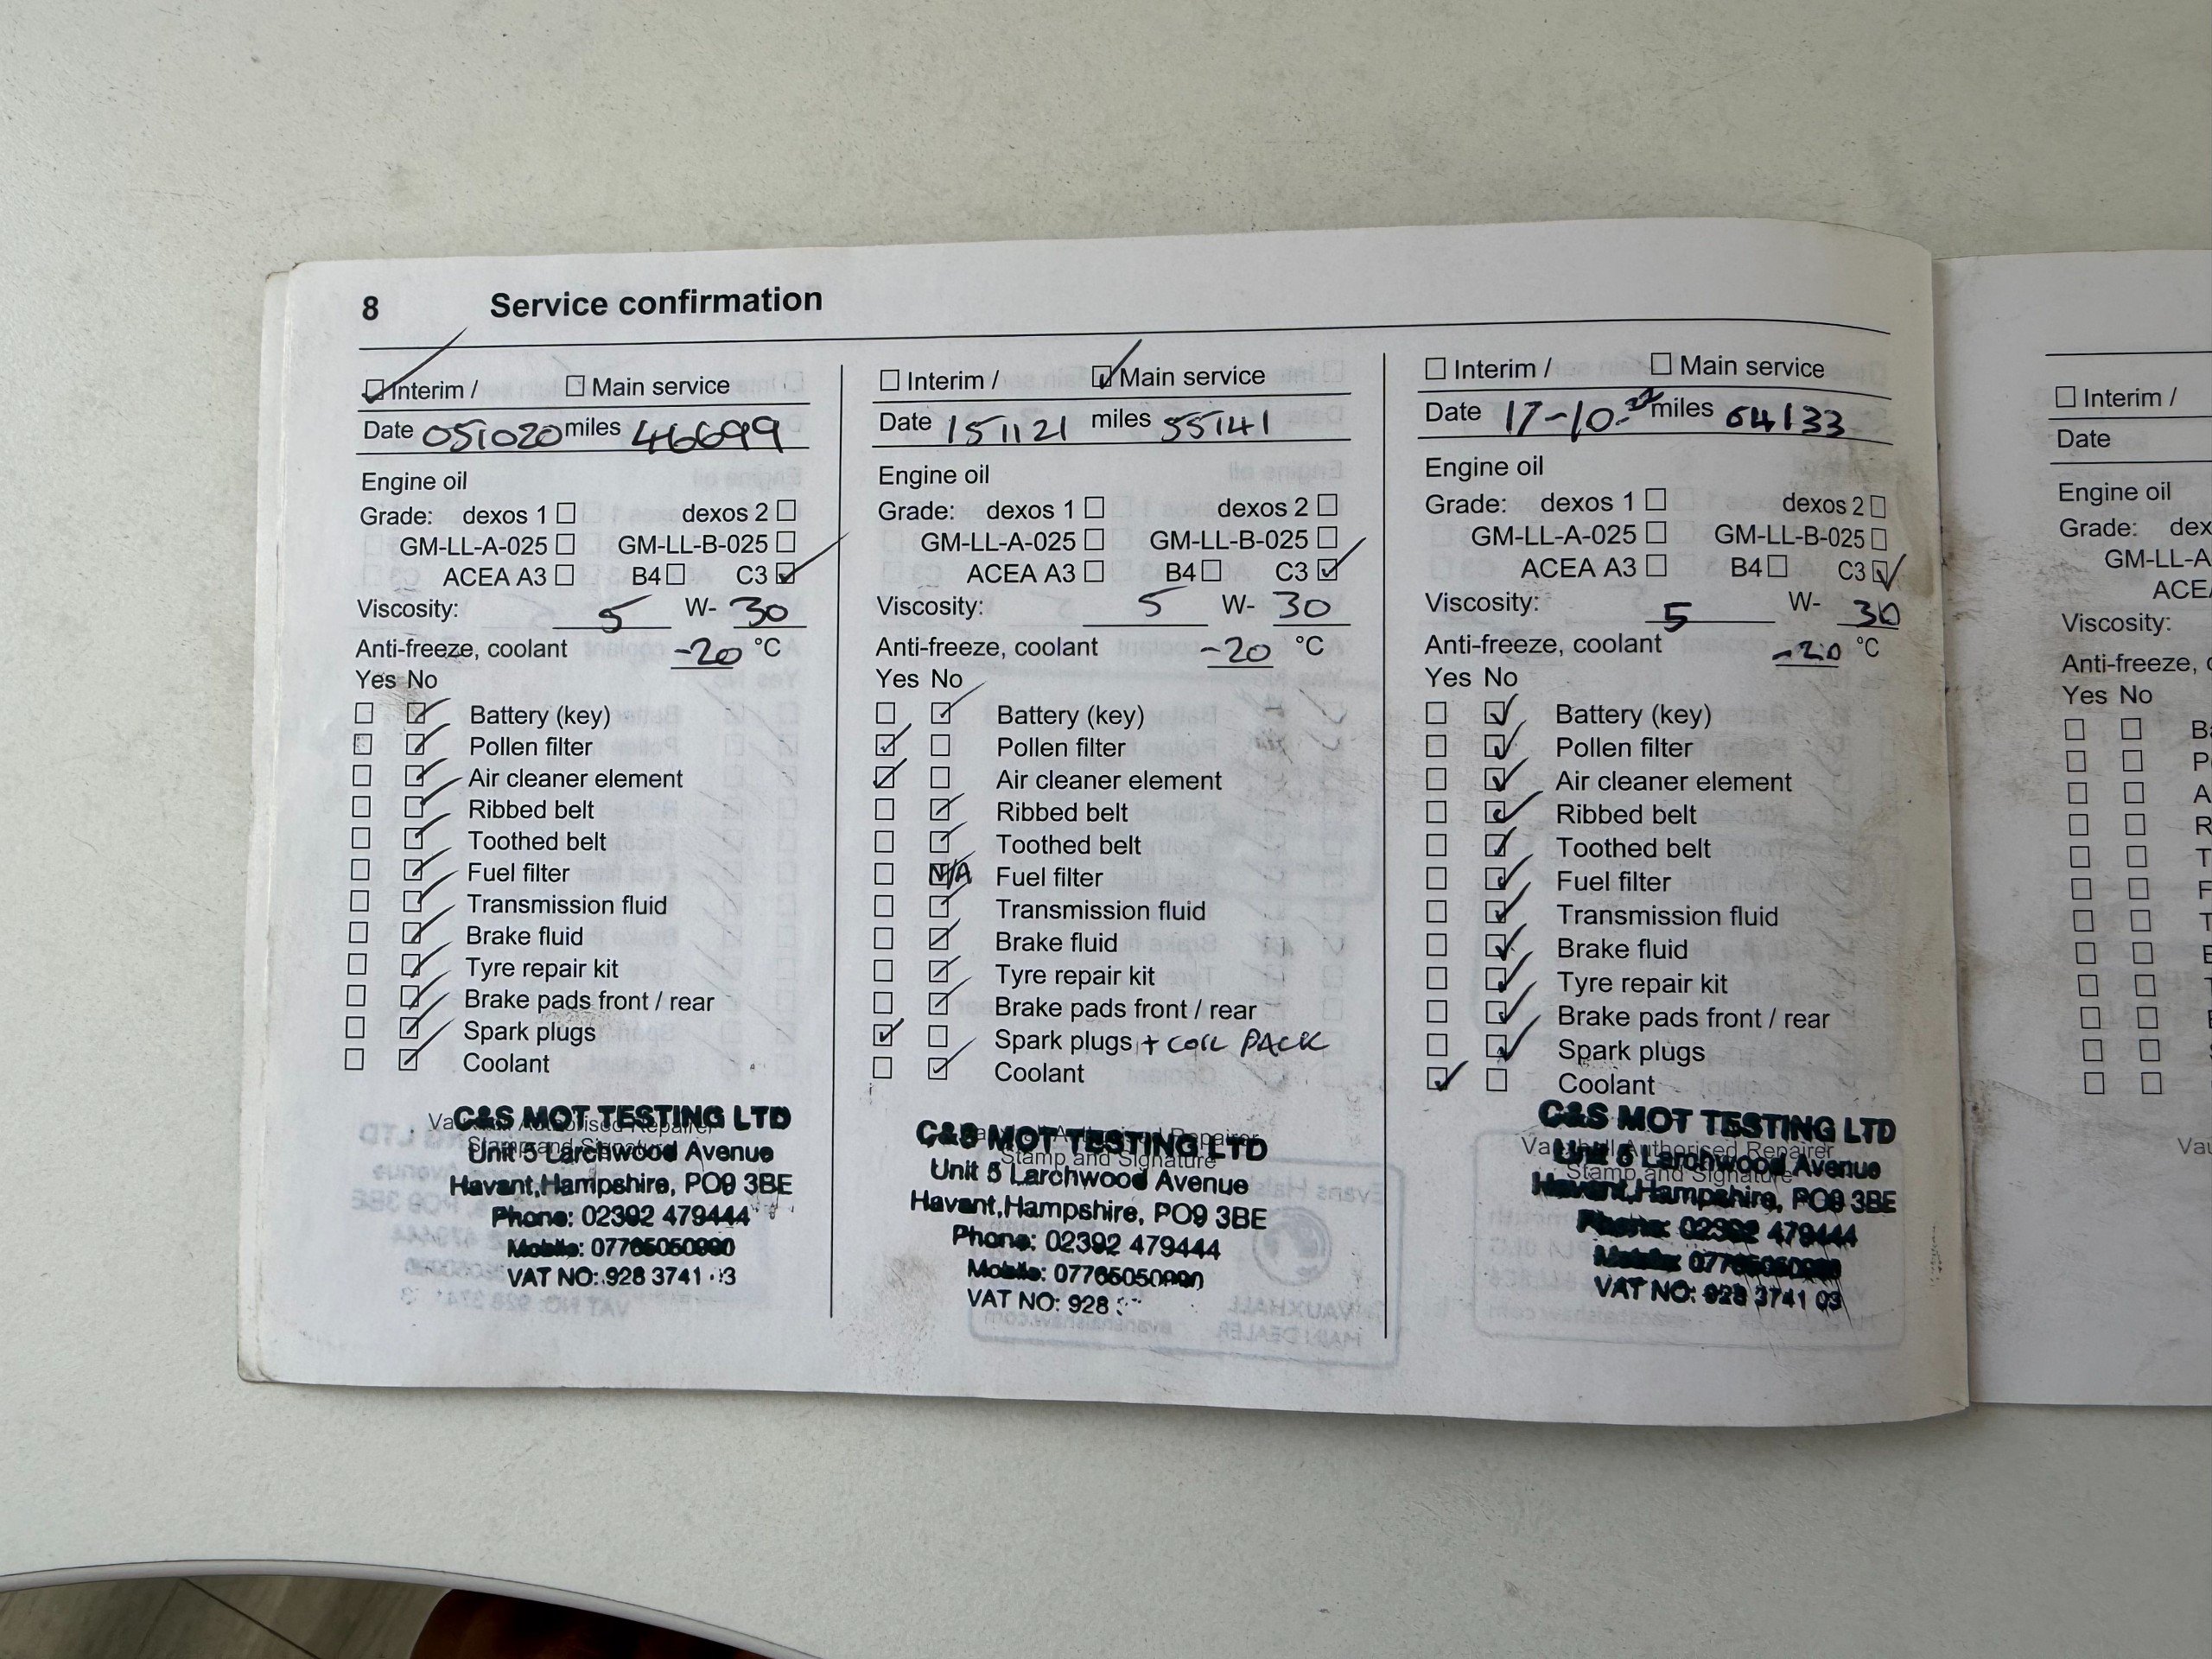 8 Service confirmation
Interim / Main service
Date 051020 miles 46699
Engine oil
Grade: dexos 1 dexos 2
GM-LL-A-025 GM-LL-B-025
ACEA A3 B4 C3
Viscosity: 5 W- 30
Anti-freeze, coolant -20 °C
Yes No
Battery (key)
Pollen filter
Air cleaner element
Ribbed belt
Toothed belt
Fuel filter
Transmission fluid
Brake fluid
Tyre repair kit
Brake pads front / rear
Spark plugs
Coolant
C&S MOT TESTING LTD
Vauxhall Authorised Repairer
Stamp and Signature
Unit 5 Larchwood Avenue
Havant,Hampshire, PO9 3BE
Phone: 02392 479444
Mobile:
VAT NO: 928 3741
Interim / Main service
Date 151121 miles 55141
Engine oil
Grade: dexos 1 dexos 2
GM-LL-A-025 GM-LL-B-025
ACEA A3 B4 C3
Viscosity: 5 W- 30
Anti-freeze, coolant -20 °C
Yes No
Battery (key)
Pollen filter
Air cleaner element
Ribbed belt
Toothed belt
N/A Fuel filter
Transmission fluid
Brake fluid
Tyre repair kit
Brake pads front / rear
Spark plugs + COIL PACK
Coolant
C&S MOT TESTING LTD
Stamp and Signature
Unit 5 Larchwood Avenue
Havant,Hampshire, PO9 3BE
Phone: 02392 479444
Mobile:
VAT NO: 928
Interim / Main service
Date 17-10-22 miles 64133
Engine oil
Grade: dexos 1 dexos 2
GM-LL-A-025 GM-LL-B-025
ACEA A3 B4 C3
Viscosity: 5 W- 30
Anti-freeze, coolant -20 °C
Yes No
Battery (key)
Pollen filter
Air cleaner element
Ribbed belt
Toothed belt
Fuel filter
Transmission fluid
Brake fluid
Tyre repair kit
Brake pads front / rear
Spark plugs
Coolant
C&S MOT TESTING LTD
Vauxhall Authorised Repairer
Unit 5 Larchwood Avenue
Stamp and Signature
Havant,Hampshire, PO9 3BE
Phone: 02392 479444
Mobile:
VAT NO: 928 3741 03
Interim /
Date
Engine oil
Grade: dex
GM-LL-A
ACEA
Viscosity:
Anti-freeze,
Yes No